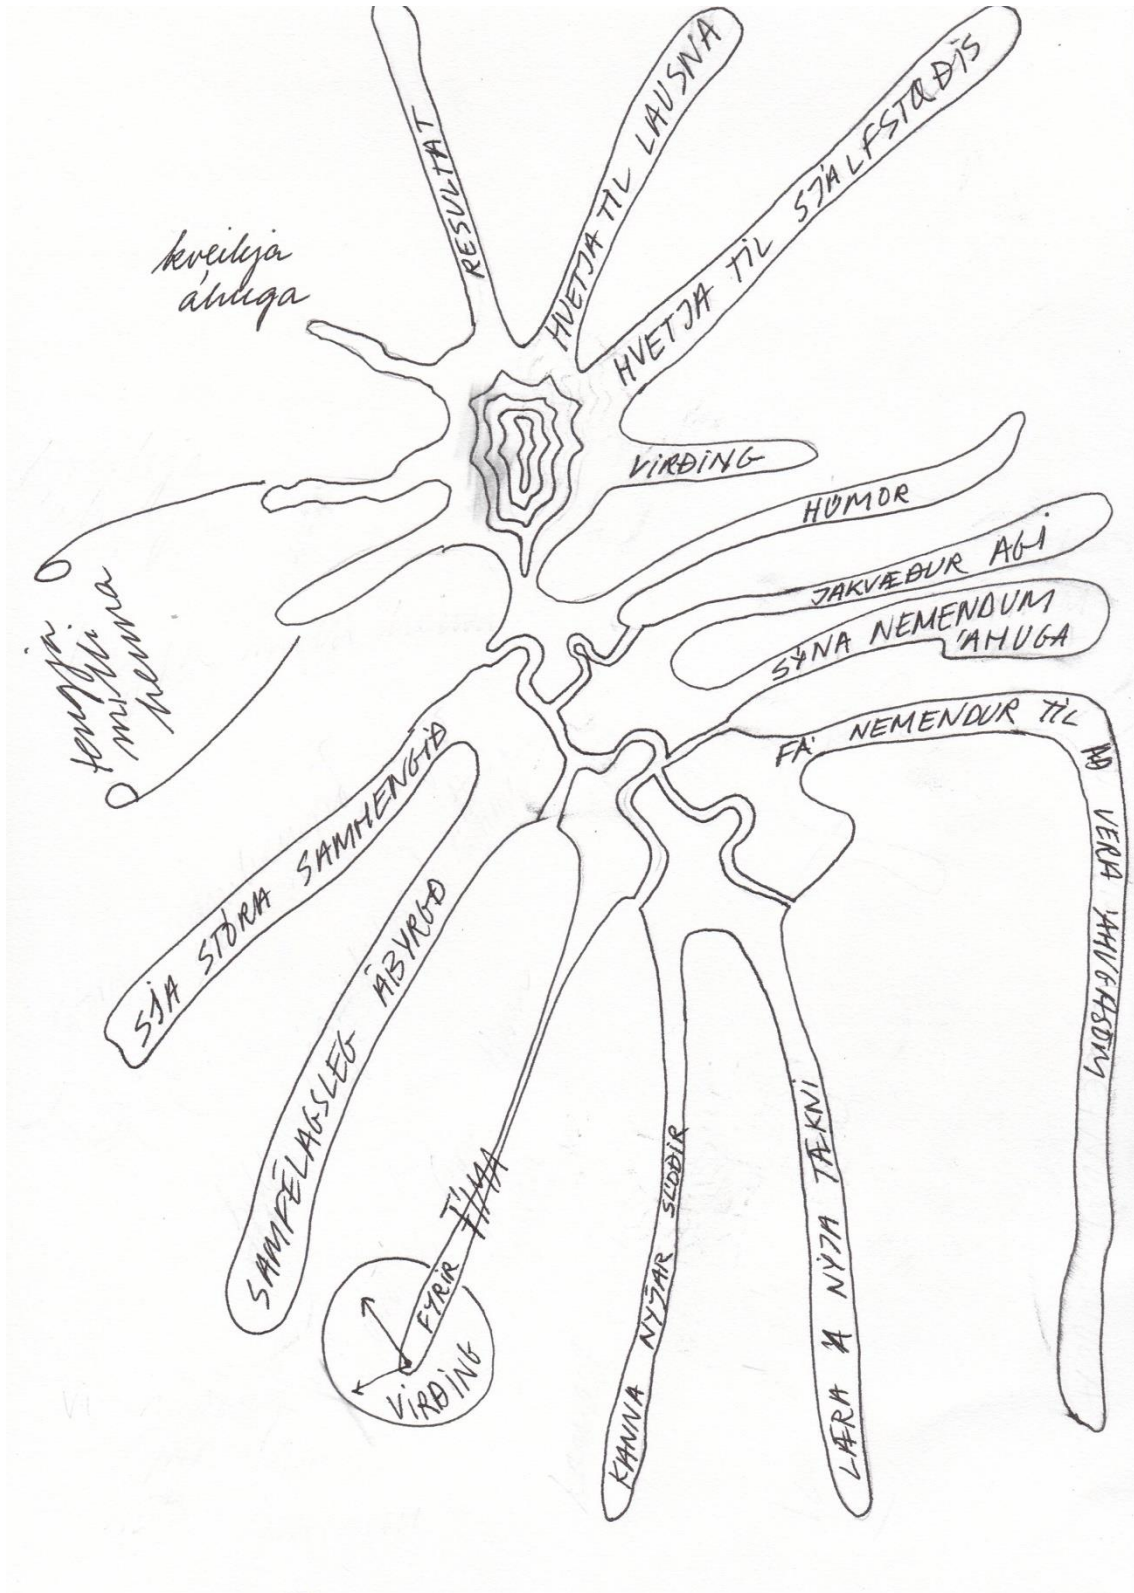 RESULTAT
HVETJA TIL LAUSNA
HVETJA TIL SJALFSTÆÐIS
kveikja
áhuga
VIRÐING
HÚMOR
JAKVÆÐUR AGI
SÝNA NEMENDUM
ÁHUGA
FÁ NEMENDUR TIL AÐ VERA ÁHUGASÖM
tengja
milli
heima
SJÁ STÓRA SAMHENGIÐ
SAMFÉLAGSLEG ÁBYRGÐ
VIRÐING
FYRIR TÍMA
KANNA NÝJAR SLÓÐIR
LÆRA Á NÝJA TÆKNI